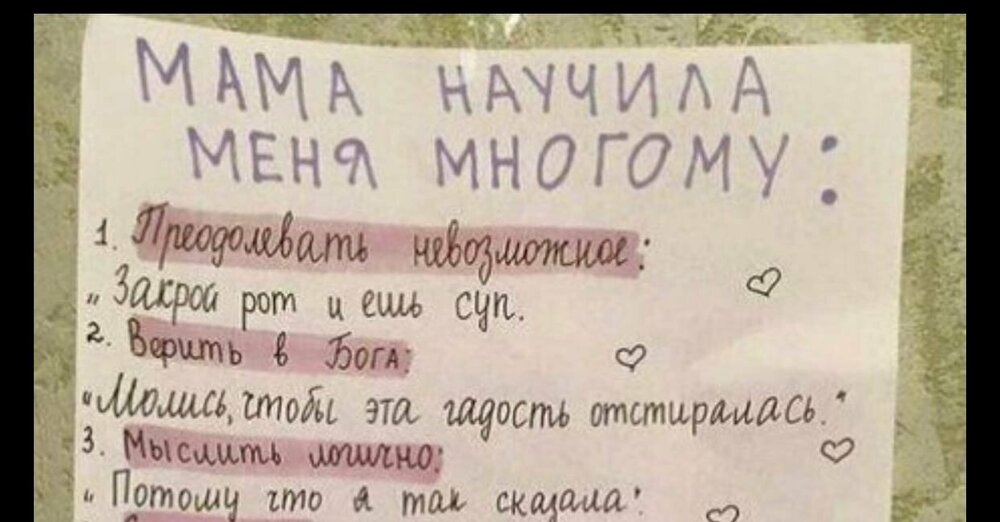 МАМА НАУЧИЛА
МЕНЯ МНОГОМУ:
1. Преодолевать невозможное:
„Закрой рот и ешь суп.
2. Верить в Бога:
"Молись, чтобы эта гадость отстиралась."
3. Мыслить логично:
„Потому что я так сказала"